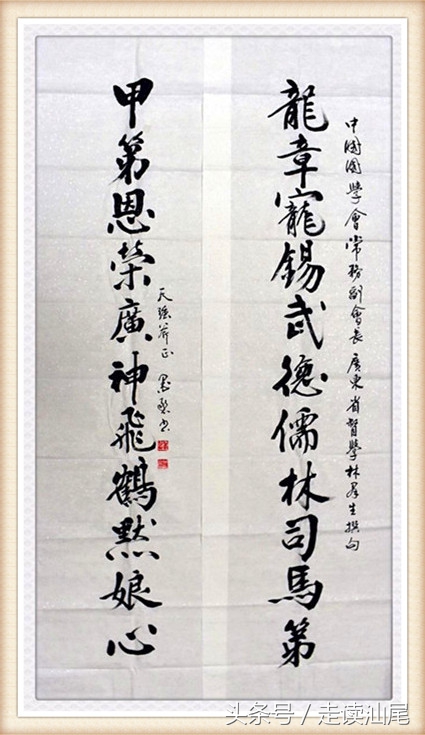 中國國學會常務副會長 廣東省督學林生撰句
龍章寵錫武德儒林司馬第
斧正 墨書
甲第恩榮廣神飛鶴默娘心
头条号 / 走读汕尾